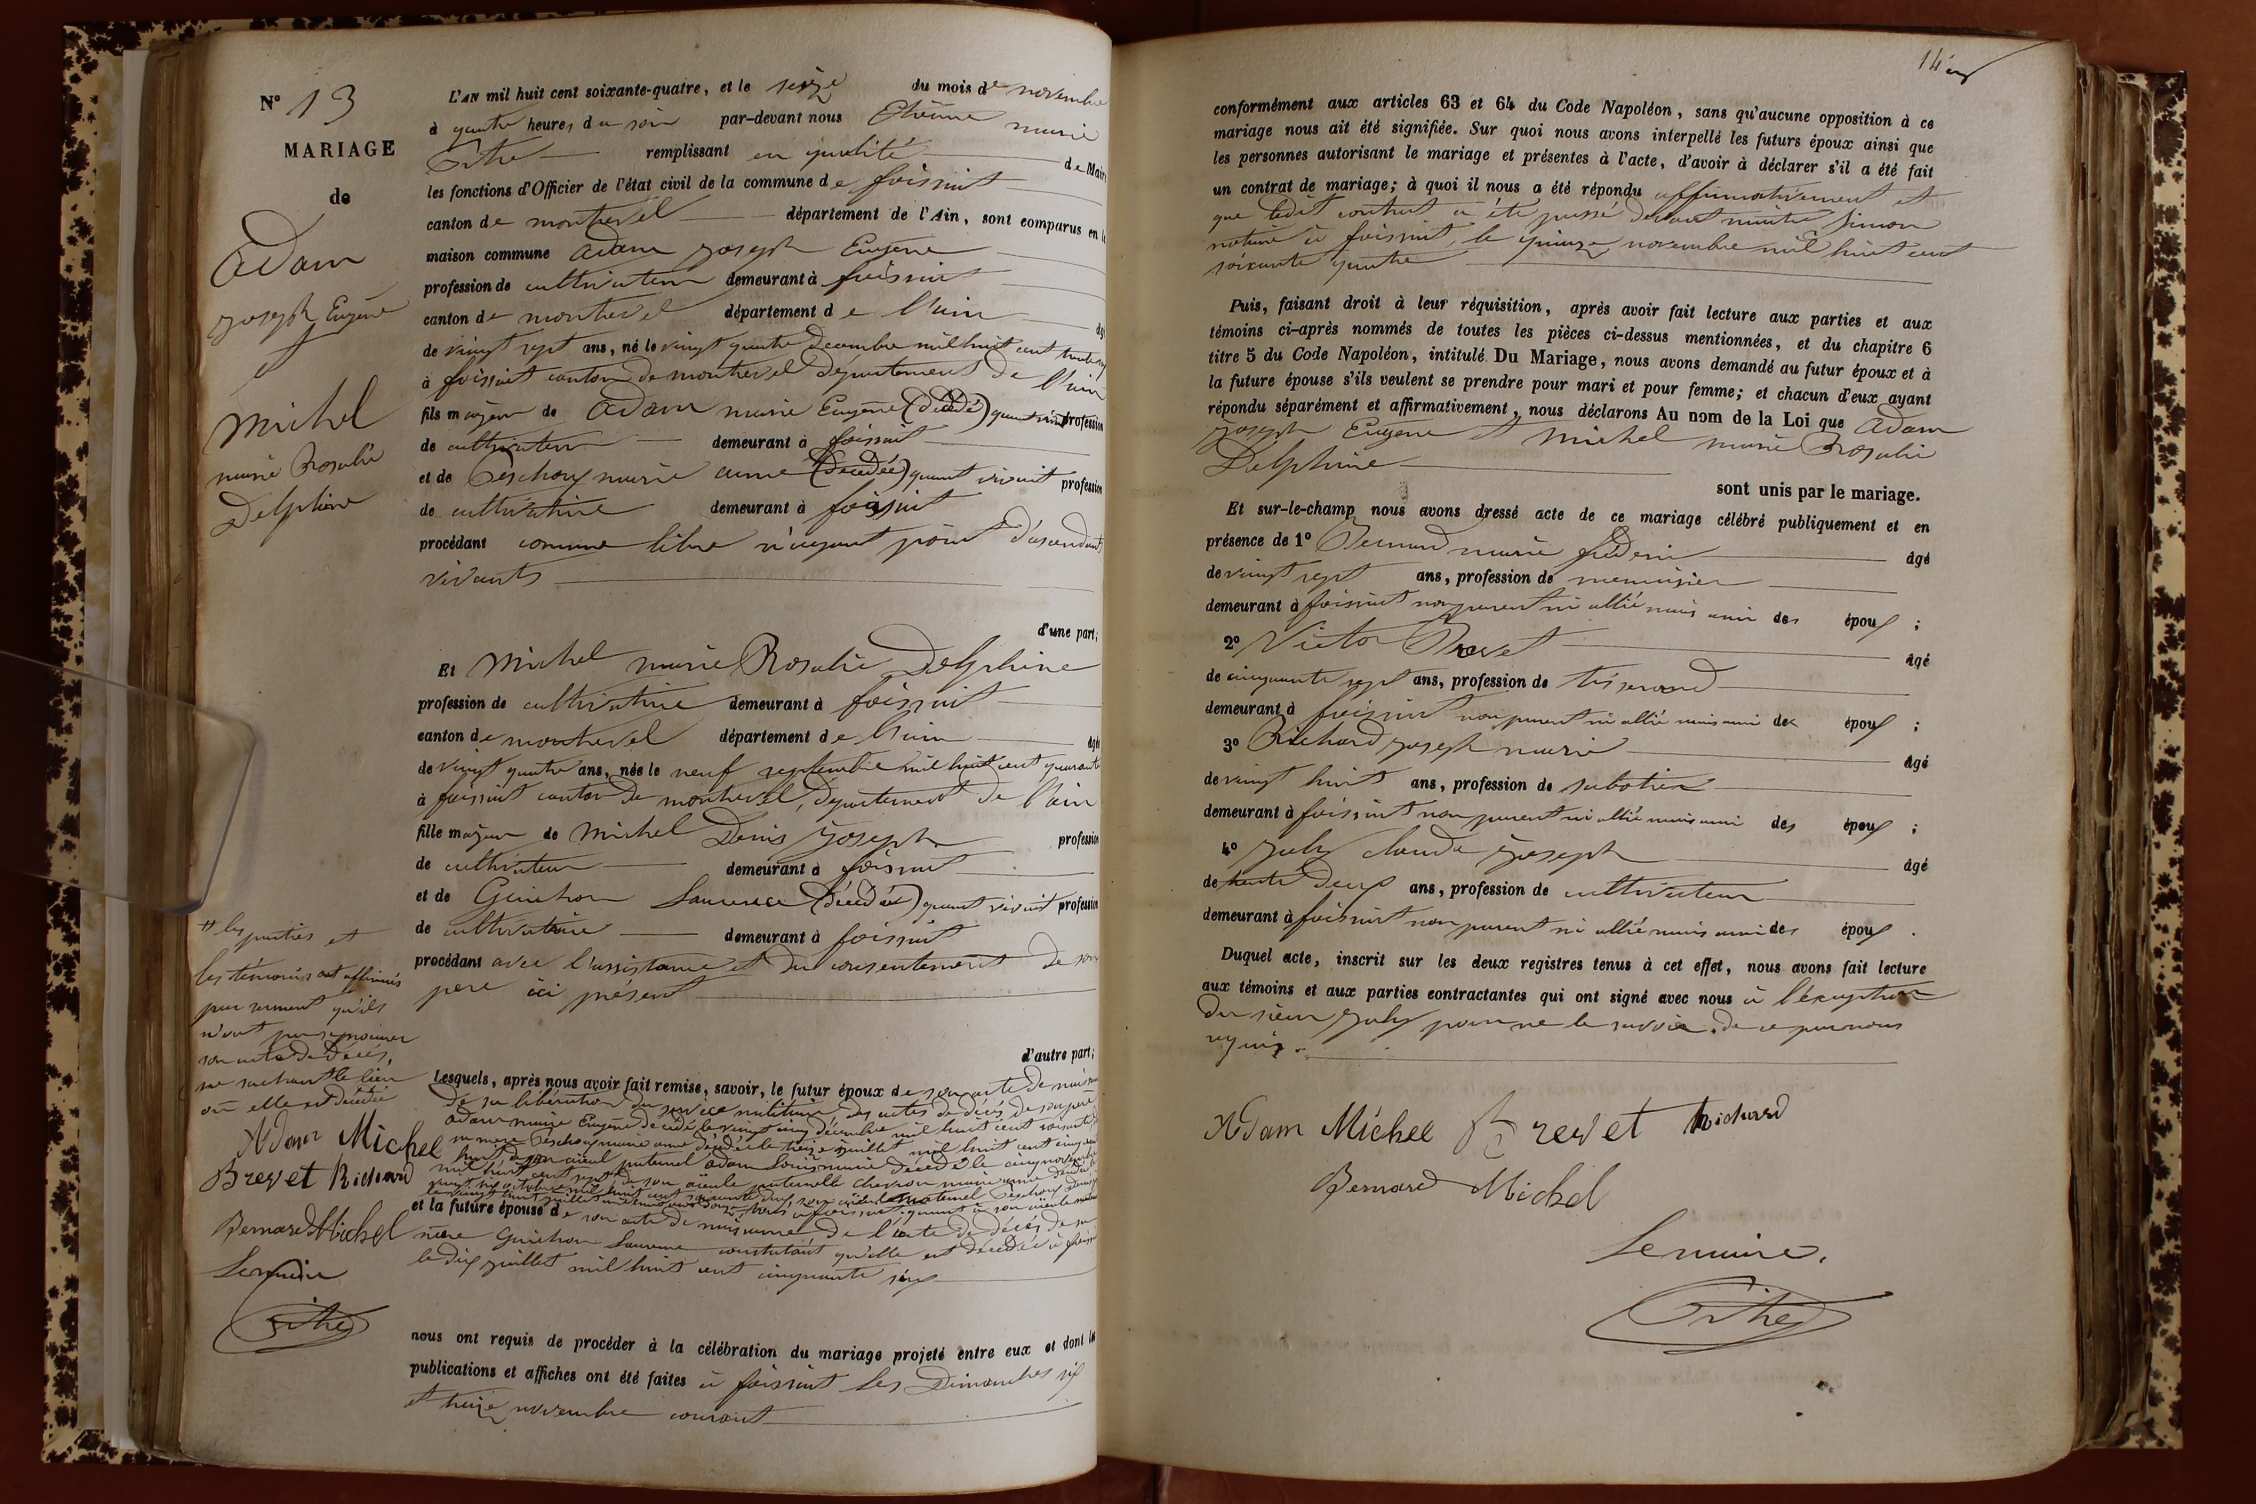 N° 13
MARIAGE
de
Adam
Joseph Eugène
et
Michel
marie Rosalie
Delphine
L'AN mil huit cent soixante-quatre, et le seize du mois de novembre
à quatre heures du soir par-devant nous Etienne marie
remplissant en qualité de Maire
les fonctions d'Officier de l'état civil de la commune de foissiat
canton de montrevel département de l'Ain, sont comparus en la
maison commune Adam Joseph Eugène
profession de cultivateur demeurant à foissiat
canton de montrevel département de l'ain âgé
de vingt sept ans, né le vingt quatre Décembre mil huit cent trente six
à foissiat canton de montrevel Département de l'ain
fils majeur de Adam marie Eugène (décédé) quand vivait profession
de cultivateur demeurant à foissiat
et de Peschoux marie anne (décédée) quant vivait profession
de cultivatrice demeurant à foissiat
procédant comme libre n'ayant point d'ascendants
vivants
d'une part;
Et Michel marie Rosalie Delphine
profession de cultivatrice demeurant à foissiat
canton de montrevel département de l'ain âgée
de vingt quatre ans, née le neuf septembre mil huit cent quarante
à foissiat canton de montrevel, Département de l'ain
fille majeure de Michel Denis Joseph profession
de cultivateur demeurant à foissiat
et de Guichon Laurence (décédée) quant vivait profession
de cultivatrice demeurant à foissiat
procédant avec l'assistance et du consentement de son
père ici présent
d'autre part;
Lesquels, après nous avoir fait remise, savoir, le futur époux de son acte de naissance
de sa libération du service militaire des actes de décès de son père
Adam marie Eugène décédé le vingt cinq décembre mil huit cent soixante
sa mère Peschoux marie anne décédée le treize juillet mil huit cent cinquante
huit de son aïeul paternel Adam Louis marie décédé le cinq novembre
mil huit cent sept de son aïeule paternelle chevron marie anne décédée le
vingt six octobre mil huit cent quarante
et la future épouse de son acte de naissance de l'acte de décès de sa
mère Guichon Laurence constatant qu'elle est décédée à foissiat
le dix juillet mil huit cent cinquante six
nous ont requis de procéder à la célébration du mariage projeté entre eux et dont les
publications et affiches ont été faites à foissiat les Dimanches six
et treize novembre courant
les parties et
les témoins ont affirmés
par serment qu'ils
n'ont pu se procurer
son acte de décès,
ne sachant le lieu
où elle est décédée
Adam Michel
Brevet Richard
Bernard Michel
Le maire
14
conformément aux articles 63 et 64 du Code Napoléon, sans qu'aucune opposition à ce
mariage nous ait été signifiée. Sur quoi nous avons interpellé les futurs époux ainsi que
les personnes autorisant le mariage et présentes à l'acte, d'avoir à déclarer s'il a été fait
un contrat de mariage; à quoi il nous a été répondu affirmativement et
que ledit contrat a été passé devant maître Simon
notaire à foissiat, le quinze novembre mil huit cent
soixante quatre
Puis, faisant droit à leur réquisition, après avoir fait lecture aux parties et aux
témoins ci-après nommés de toutes les pièces ci-dessus mentionnées, et du chapitre 6
titre 5 du Code Napoléon, intitulé Du Mariage, nous avons demandé au futur époux et à
la future épouse s'ils veulent se prendre pour mari et pour femme; et chacun d'eux ayant
répondu séparément et affirmativement, nous déclarons Au nom de la Loi que Adam
Joseph Eugène et Michel marie Rosalie
Delphine
sont unis par le mariage.
Et sur-le-champ nous avons dressé acte de ce mariage célébré publiquement et en
présence de 1° Bernard marie fréderic âgé
de vingt sept ans, profession de menuisier
demeurant à foissiat non parent ni allié mais ami des époux ;
2° Victor Brevet âgé
de cinquante sept ans, profession de tisserand
demeurant à foissiat non parent ni allié mais ami des époux ;
3° Richard Joseph marie âgé
de vingt huit ans, profession de sabotier
demeurant à foissiat non parent ni allié mais ami des époux ;
4° Joly claude Joseph âgé
de trente Deux ans, profession de cultivateur
demeurant à foissiat non parent ni allié mais ami des époux .
Duquel acte, inscrit sur les deux registres tenus à cet effet, nous avons fait lecture
aux témoins et aux parties contractantes qui ont signé avec nous à l'exception
du sieur Joly pour ne le savoir, de ce par nous
requis.
Adam Michel Brevet Richard
Bernard Michel
Le maire.